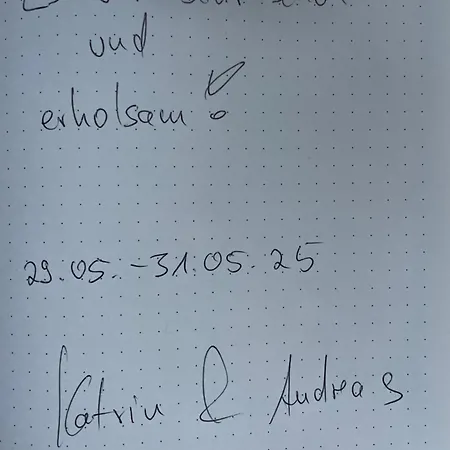 und
erholsam!
29.05.-31.05.25
Katrin & Andreas